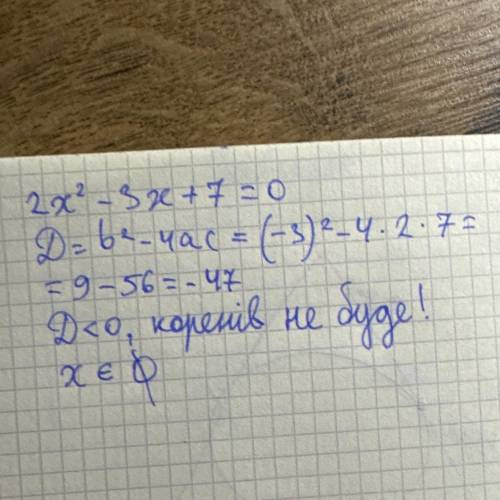 2x² - 3x + 7 = 0
D = b² - 4ac = (-3)² - 4 · 2 · 7 =
= 9 - 56 = - 47
D < 0, коренів не буде!
x ∈ ∅